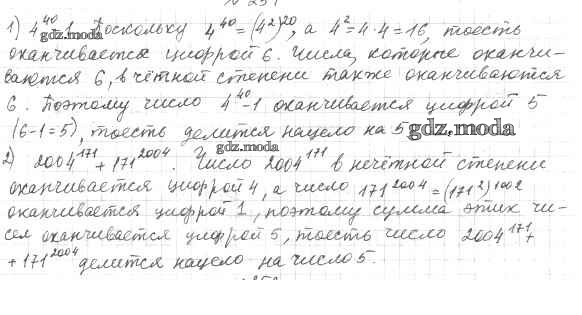 1) 4⁴⁰-1. Поскольку 4⁴⁰=(4²)²⁰, а 4²=4·4=16, тоесть
gdz.moda
оканчивается цифрой 6. Числа, которые оканчи-
ваются 6, в чётной степени также оканчиваются
6. Поэтому число 4⁴⁰-1 оканчивается цифрой 5
(6-1=5), тоесть делится нацело на 5
gdz.moda
gdz.moda
2) 2004¹⁷¹+171²⁰⁰⁴. Число 2004¹⁷¹ в нечётной степени
оканчивается цифрой 4, а число 171²⁰⁰⁴=(171²)¹⁰⁰²
оканчивается цифрой 1, поэтому сумма этих чи-
сел оканчивается цифрой 5, тоесть число 2004¹⁷¹+
+171²⁰⁰⁴ делится нацело на число 5.